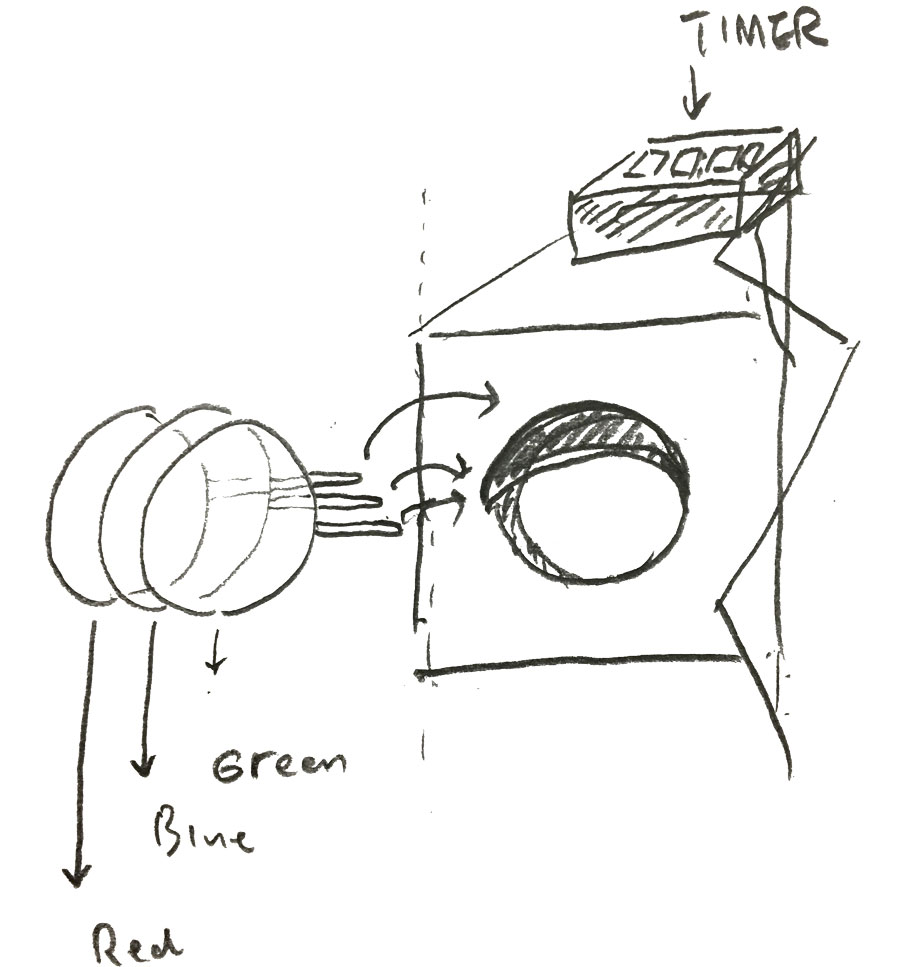 TIMER
Green
Blue
Red